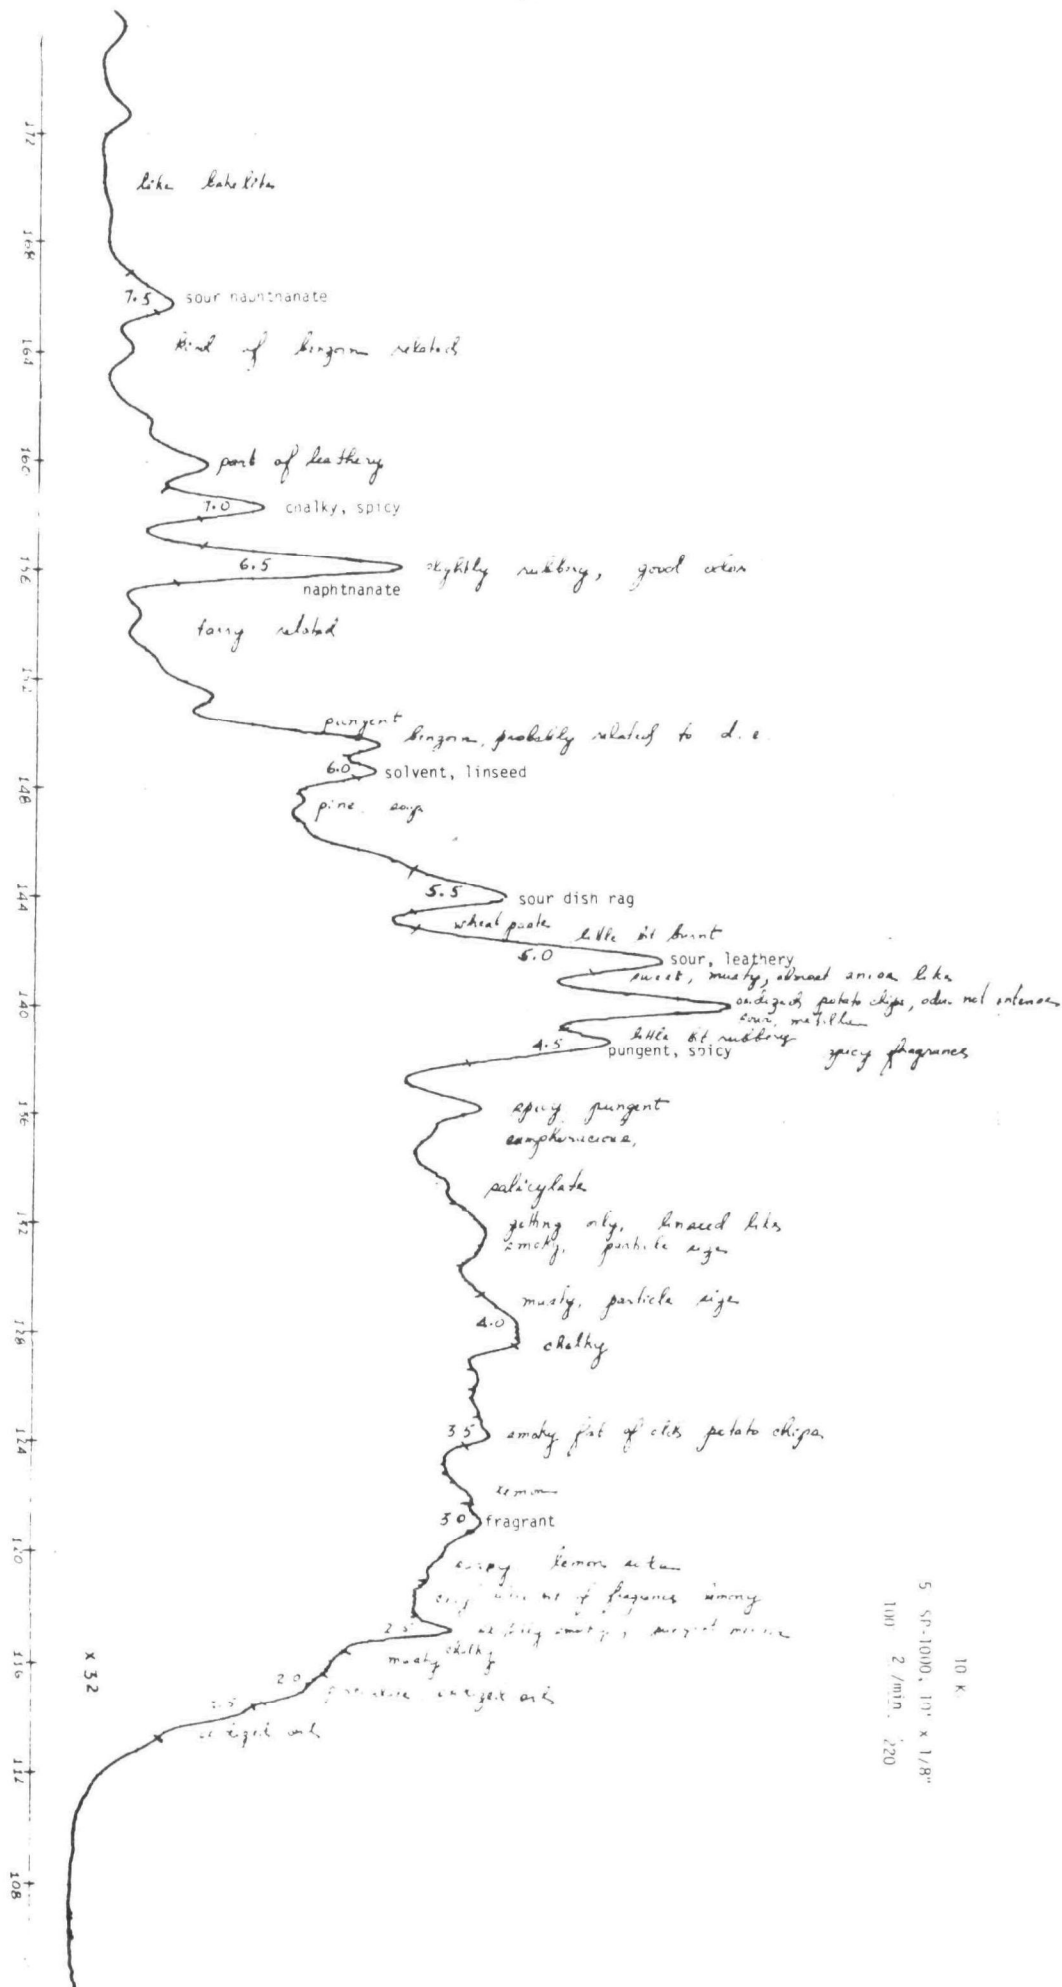 172
like bakelite
168
7.5 sour naphtnanate
164
kind of benzoin related
160
part of leathery
7.0 chalky, spicy
156
6.5 slightly rubbery, good odor
naphtnanate
tarry related
152
pungent
benzoin, probably related to d.e.
6.0 solvent, linseed
148
pine
144
5.5 sour dish rag
wheat paste little bit burnt
5.0 sour, leathery
sweet, musty, almost anise like
140
oxidized potato chips, odor not intense
sour,
little bit rubbery
4.5 pungent, spicy spicy fragrance
136
spicy pungent
camphoraceous,
salicylate
132
getting oily, linseed like
smoky, particle size
musty, particle size
4.0
128
chalky
3.5 smoky potato chips
124
lemon
3.0 fragrant
120
lemon
of fragrance
2.5
chalky
musty
116
2.0
x 32
112
108
10 K
5 SP-1000, 10' x 1/8"
100 2 /min. 220